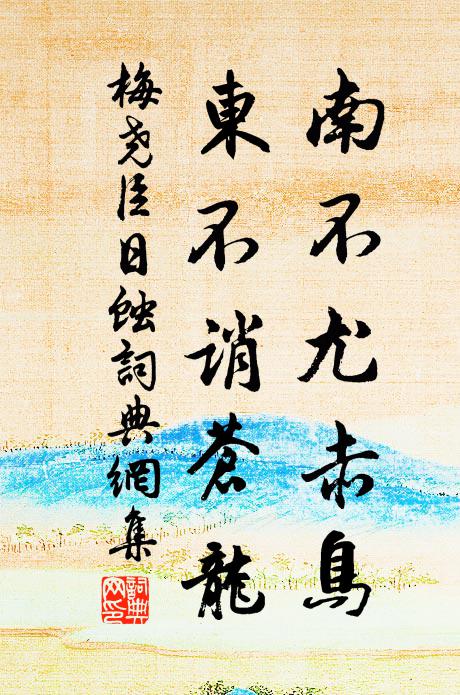 南不尤赤鳥
東不誚蒼龍
梅堯臣日蝕詞典網集